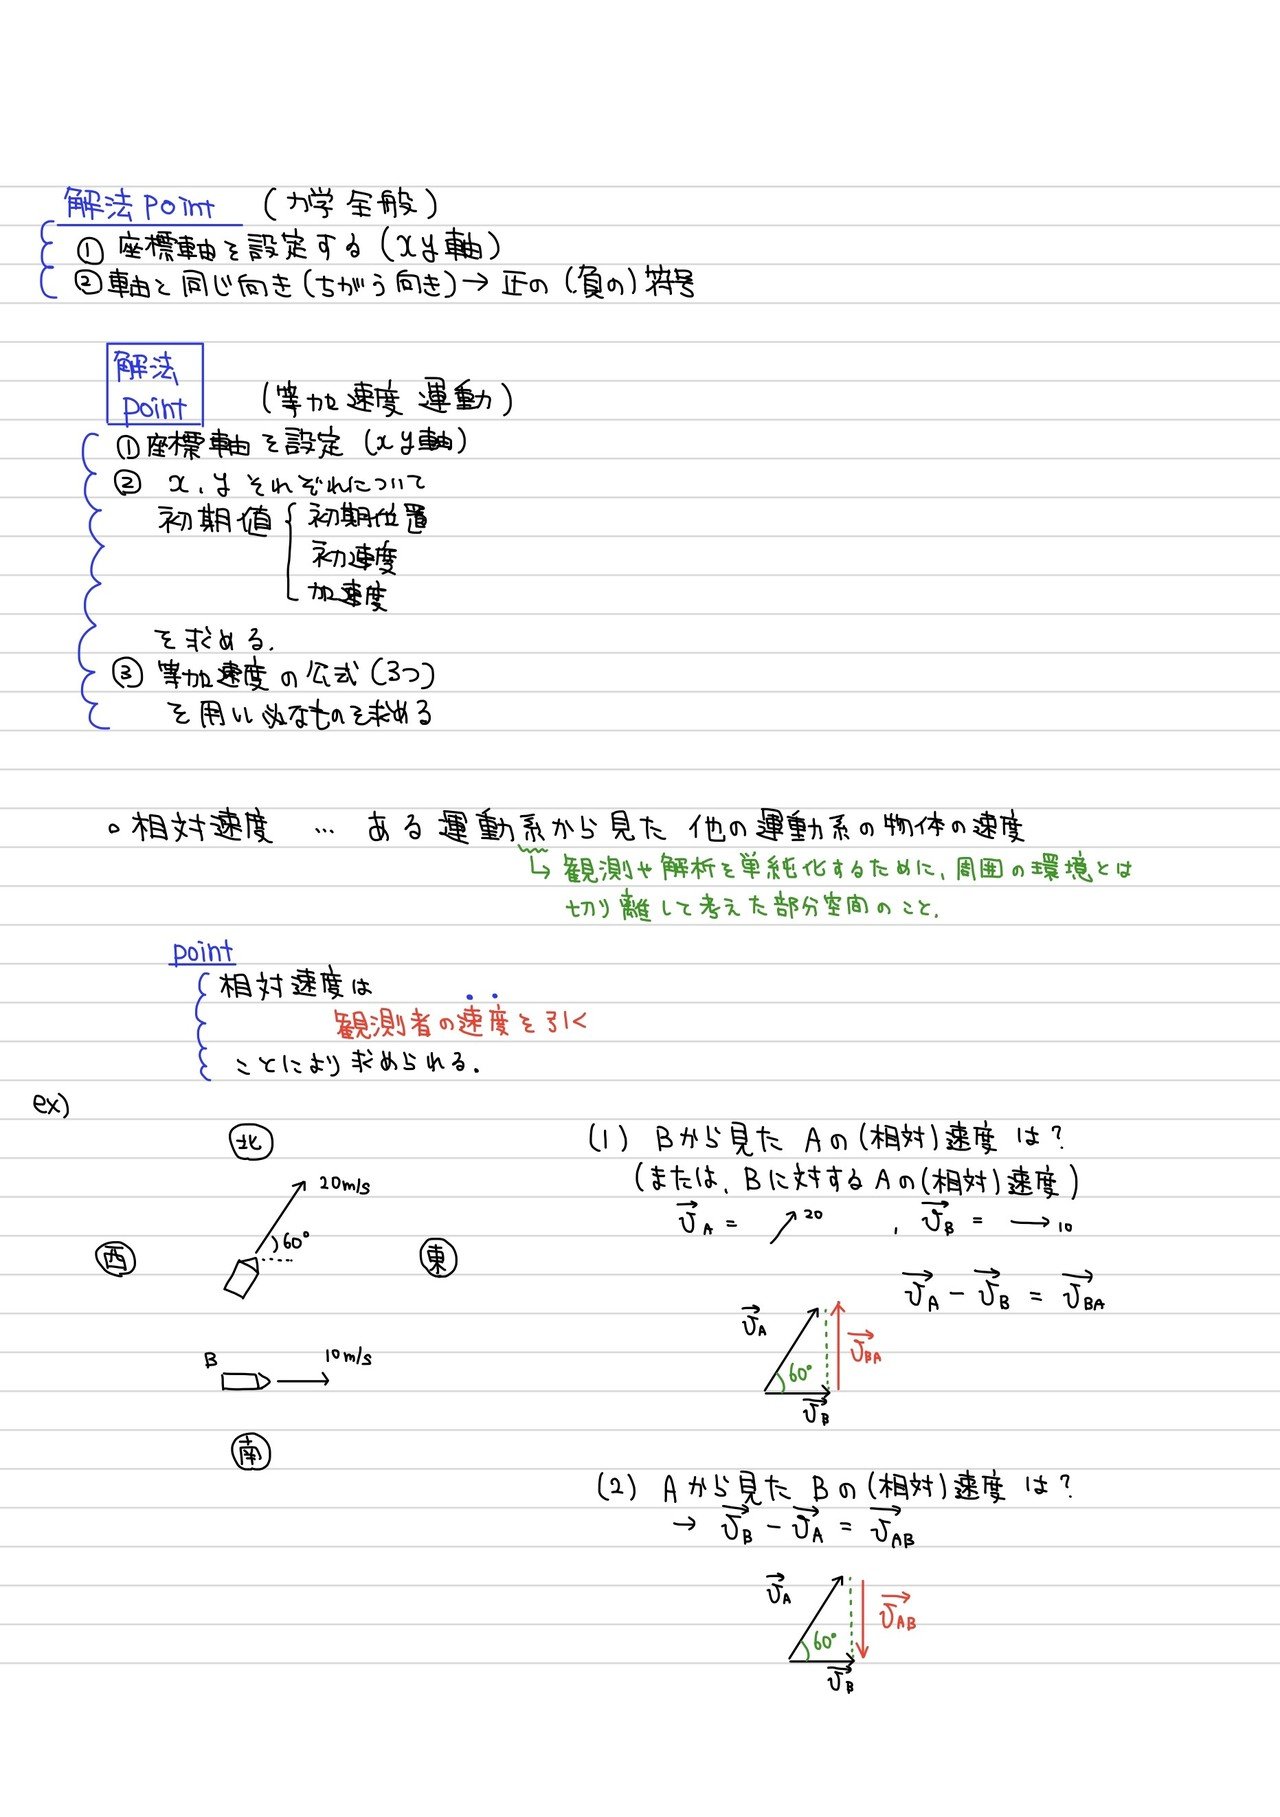 解法point (力学全般)
① 座標軸を設定する(xy軸)
②軸と同じ向き(ちがう向き)→正の(負の)符号
解法
point
(等加速度運動)
①座標軸を設定(xy軸)
② x、yそれぞれについて
初期値{初期位置
初速度
加速度
を求める.
③ 等加速度の公式(3つ)
を用い必なものを求める
○相対速度 … ある運動系から見た他の運動系の物体の速度
↳ 観測や解析を単純化するために、周囲の環境とは
切り離して考えた部分空間のこと.
point
相対速度は
観測者の速度を引く
ことにより求められる.
ex)
北
20m/s
60°
西
東
B
10m/s
南
(1) Bから見たAの(相対)速度は?
(または、Bに対するAの(相対)速度)
v⃗A = ↗20 , v⃗B = →10
v⃗A - v⃗B = v⃗BA
v⃗A
v⃗BA
60°
v⃗B
(2) Aから見たBの(相対)速度は?
→ v⃗B - v⃗A = v⃗AB
v⃗A
v⃗AB
60°
v⃗B